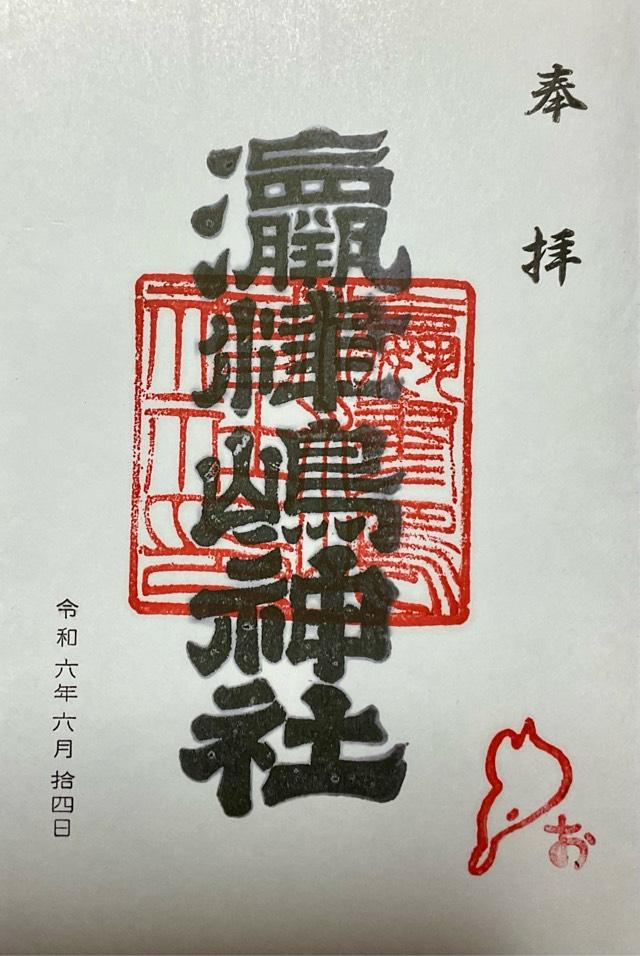 奉拝
瀛津嶋神社
令和六年六月拾四日
お